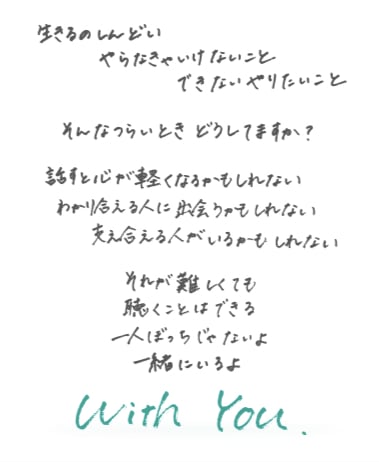 生きるのしんどい
やらなきゃいけないこと
できないやりたいこと
そんなつらいとき どうしてますか?
話すと心が軽くなるかもしれない
わかり合える人に出会うかもしれない
支え合える人がいるかもしれない
それが難しくても
聴くことはできる
一人ぼっちじゃないよ
一緒にいるよ
With You.